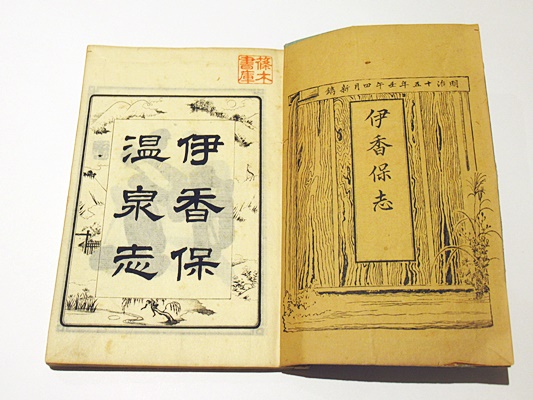 明治十五年壬午四月新鐫
伊香保志
篠木
書庫
伊香保
温泉志